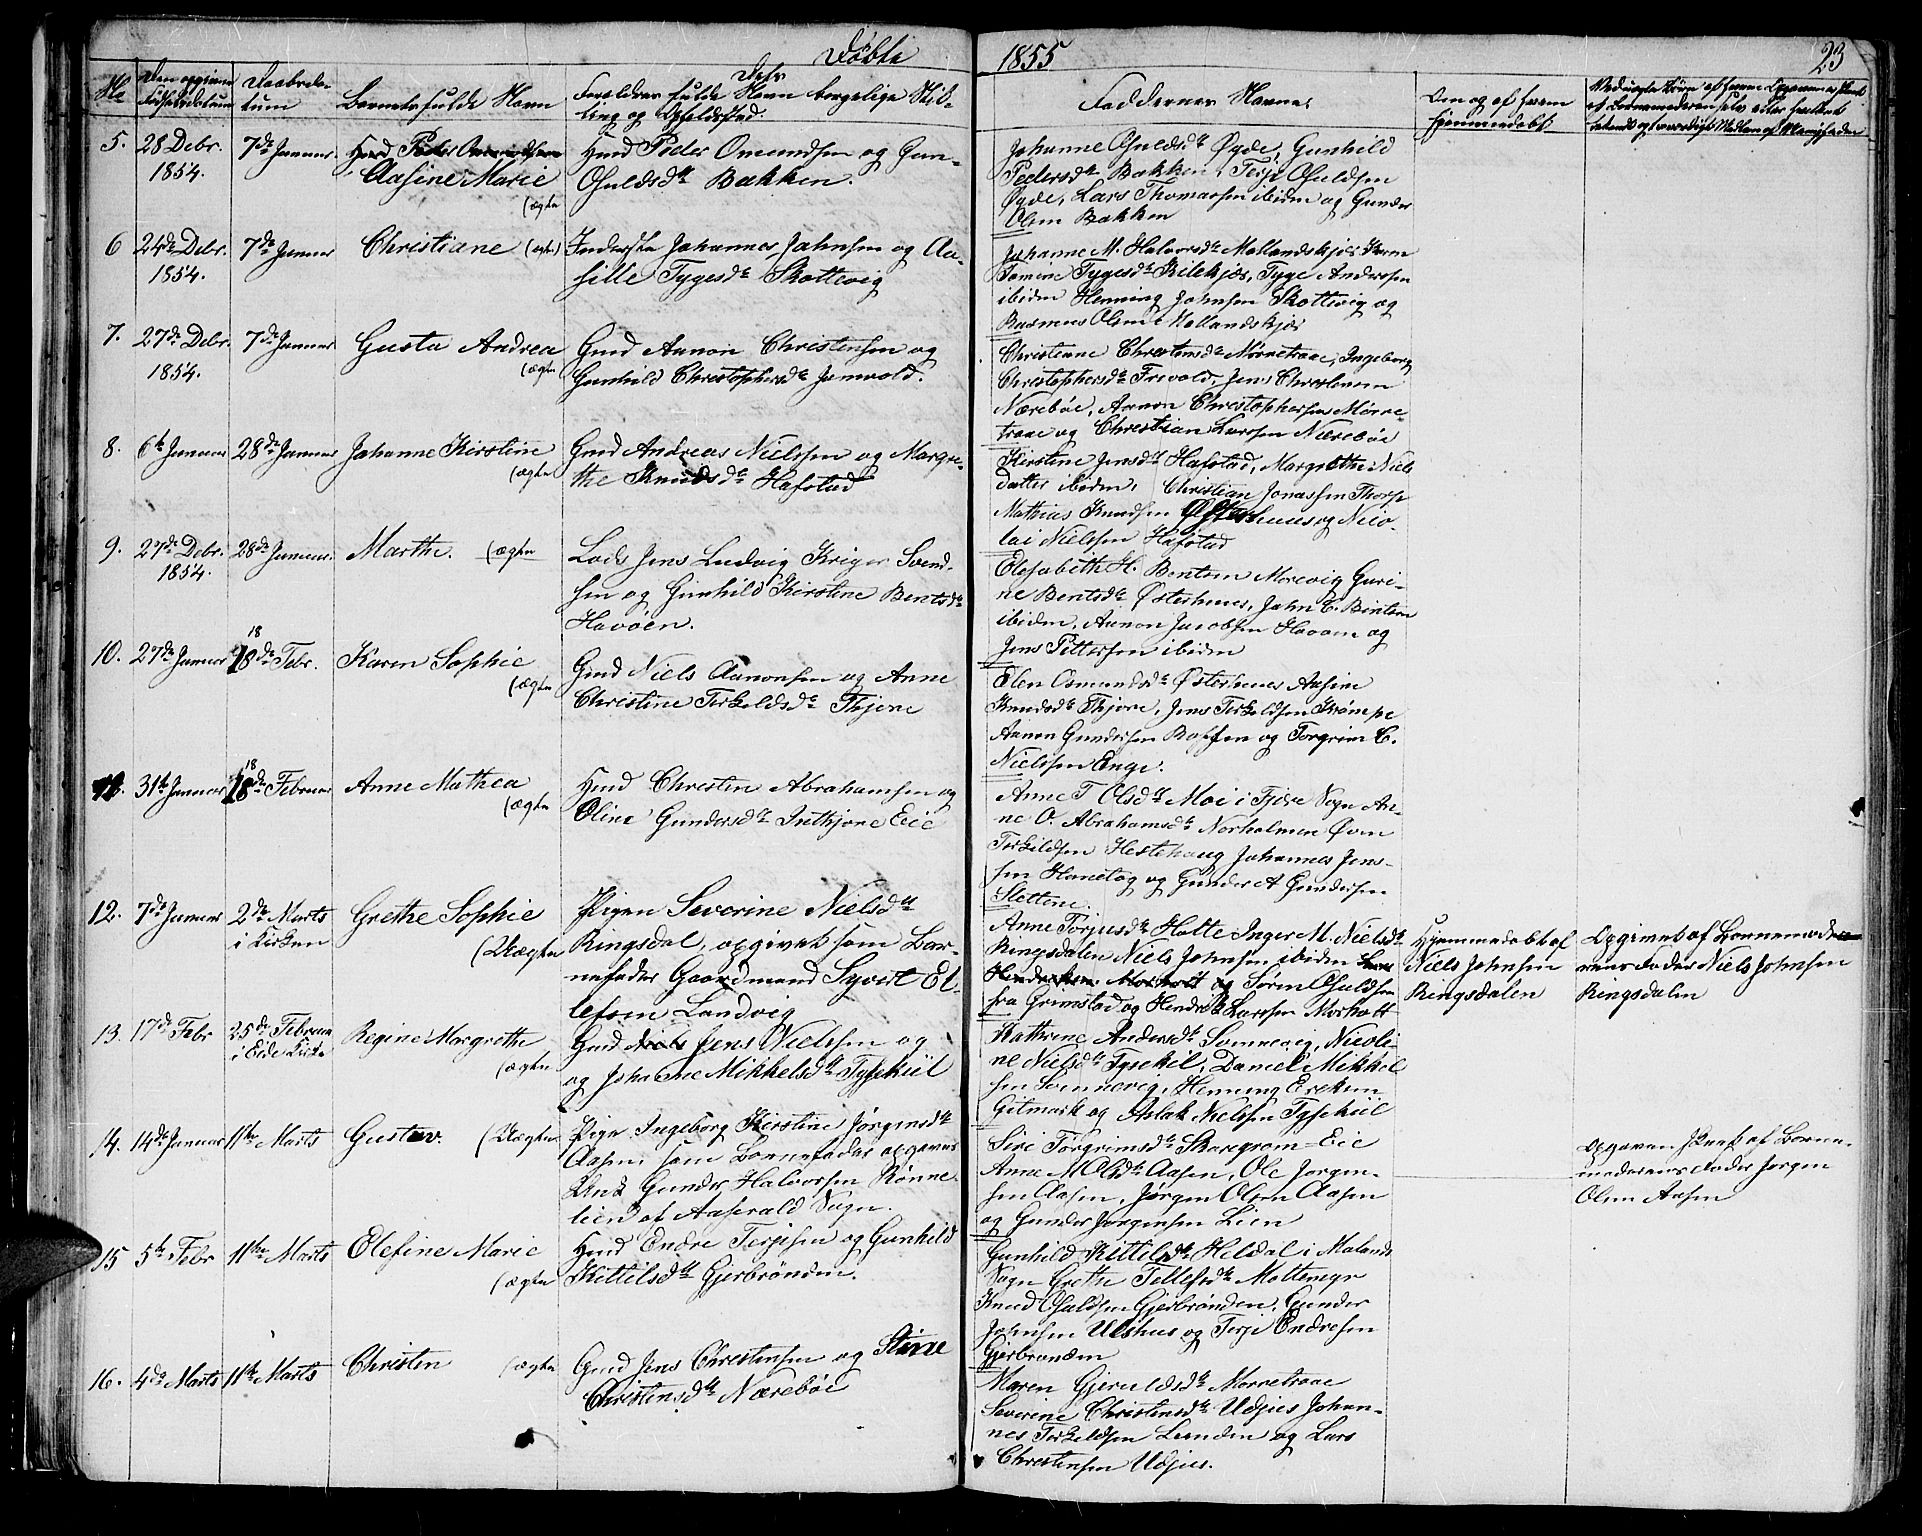 Døbte
1855
23
No
Den opgivne Fødselsdatum
Daabsda-
tum
Barnets fulde Navn
Forældres fulde Navn borgelige Stil-
ling og Opholdssted.
Faddernes Navne.
Om og af hvem
hjemmedøbt
5. 28 Debr. 1854. 7de Januar
Aasine Marie
(ægte
Huusd Peder Omundsen og Gun-
Osuldsdtr Bakken.
Johanne Osuldsdtr Øgde, Gunhild
Pedersdtr Bakken, Terje Osuldsen
Øgde, Lars Thomassen ibidem og Gunder
Olsen Bakken
6 24de Debr. 1854. 7de Januar
Christiane (ægte)
Inderste Johannes Jahnsen og Aa-
sille Tygesdtr Skottevig
Johanne M. Halvorsdtr Mollandskjær Karen
Tomine Tygesdtr Kilekjær, Tyge Andersen
ibidem Henning Jahnsen Skottevig og
Rasmus Olsen Mollandskjær
7. 27de Debr. 1854. 7de Januar
Gusta Andrea
(ægte
Gmd Aanon Christensen og
Gunhild Christophersdtr Jamvold.
Christiane Christensdtr Mørnetraae, Ingeborg
Christophersdtr Frivold, Jens Christensen
Nærebøe, Aanon Christophersen Mørne-
traae og Christian Larsen Nærebøe
8. 6te Januar 28de Januar
Johanne Kirstine
(ægte
Gmd Andreas Nielssen og Margre-
the Knudsdtr Hafstad
Kirstine Jensdtr Hafstad, Margrethe Niels
datter ibidem, Christian Jonassen Thorp
Mathias Knudsen Østerhuus og Nico-
lai Nielssen Hafstad
9. 27de Debr. 1854. 28de Januar
Marthe. (ægte
Lods Jens Ludvig Kriger Svend-
sen og Gunhild Kirstine Bentsdtr
Havøen.
Elisabeth H. Bentsen Morevig Guri-
ne Bentsdtr Østerhuus, John C. Bentsen
ibidem, Aanon Jacobsen Havøen og
Jens Pettersen ibidem
10. 27de Januar 18 18de Febr.
Karen Sophie
(ægte
Gmd Niels Aanonsen og Anne
Christine Terkeldsdtr Thjore
Elen Osmundsdtr Østerhuus Aasine
Knudsdtr Thjore, Jens Terkeldsen Krømpe
Aanon Gundersen Roffen og Torgrim C.
Nielssen Enge.
11. 31te Januar 18 18de Februar
Anne Mathea
(ægte
Hmd Christen Abrahamsen og
Oline Gundersdtr Inthjore Eie
Anne T Olsdtr Moi i Fjære Sogn An-
ne O. Abrahamsdtr Norholmen Øven
Terkildsen Hestehaug Johannes Jens-
sen Hanetog og Gunder A Gundersen
Slettene.
12. 7de Januar 2de Marts
i Kirken
Grethe Sophie
(Uægte
Pigen Severine Nielsdtr
Ringsdal, opgivet som Bar-
nefader Gaardmand Syvert El-
lefsen Landvig
Anne Torjusdtr Holte Inger M. Nielsdtr
Ringsdalen Niels Johnsen ibidem
og Søren Osuldsen
fra Grimstad og Hendrik Larssen Morholt
Hjemmedøbt af
Niels Johnsen
Ringsdalen
Opgivet af Barnemode-
rens Fader Niels Johnsen
Ringsdalen
13. 17de Febr 25de Februar
i Eide Kirke
Regine Margrethe
(ægte
Gmd Jens Nielssen og
og Johanne Mikkelsdtr Tyskiil
Kathrine Andersdtr Sømnevig, Nicoli-
ne Nielsdtr Tyskiil, Daniel Mikkel
sen Sømnevig, Henning Ericksen
Gitmark og Aslak Nielssen Tyskiil
14. 14de Januar 11te Marts
Gustav. (Uægte
Pige Ingeborg Kirstine Jørgensdtr
Aasen, som Barnefader opgaves
Unk Gunder Halvorsen Rønne-
lien af Aaserald Sogn.
Siri Torgrimsdtr Skaregrøm-Eie
Anne M Olsdtr Aasen, Ole Jørgen-
sen Aasen, Jørgen Olsen Aasen
og Gunder Jørgensen Lien
Opgaven skeet af Barne-
moderens Fader Jørgen
Olsen Aasen
15 5te Febr 11te Marts
Elefine Marie
(ægte
Hmd Endre Terjesen og Gunhild
Kittilsdtr Gjerbrønden.
Gunhild Kittilsdtr Heldal i Molands
Sogn Grethe Tellefsdtr Moltemyr
Knud Osuldsen Gjerbrønden, Gunder
Johnsen Ulshus og Terje Endresen
Gjerbrønden
16. 4de Marts 11te Marts
Christen (ægte
Gmd Jens Christensen og Stine
Christensdtr Nærebøe
Maren Gjeruldsdtr Mørnetraae
Severine Christensdtr Udjus Johan-
nes Terkeldsen Lunden og Lars
Christensen Udjus.